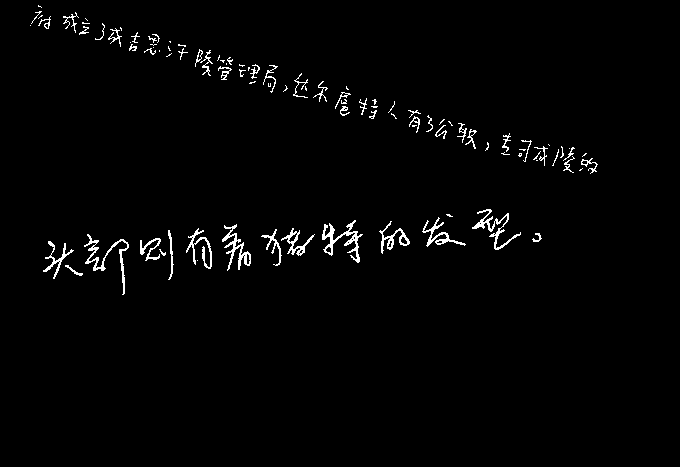 府成立了成吉思汗陵管理局,达尔扈特人有了公职,专司成陵的
头部则有着独特的发型。